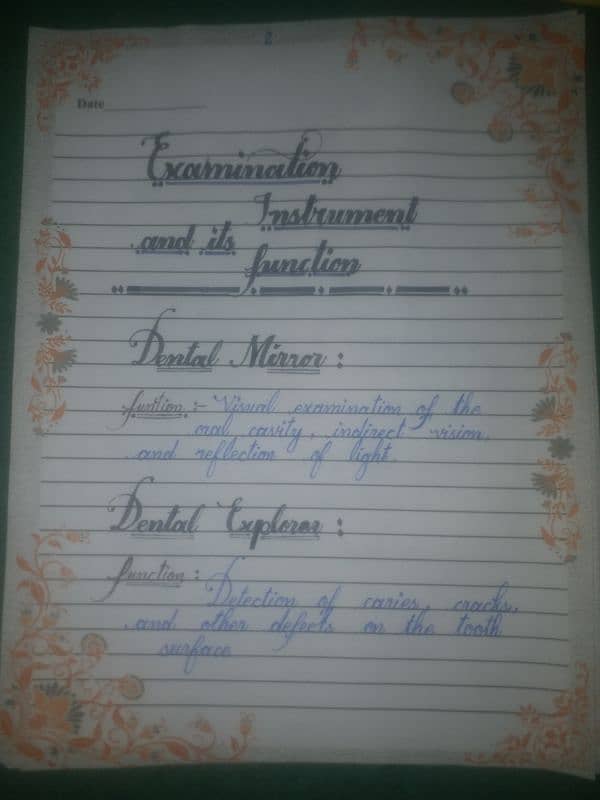 2
Date
Examination
Instrument
and its
function
Dental Mirror :
funtion :- Visual examination of the
oral cavity, indirect vision,
and reflection of light.
Dental Explorer :
function : Detection of caries, cracks,
and other defects on the tooth
surface